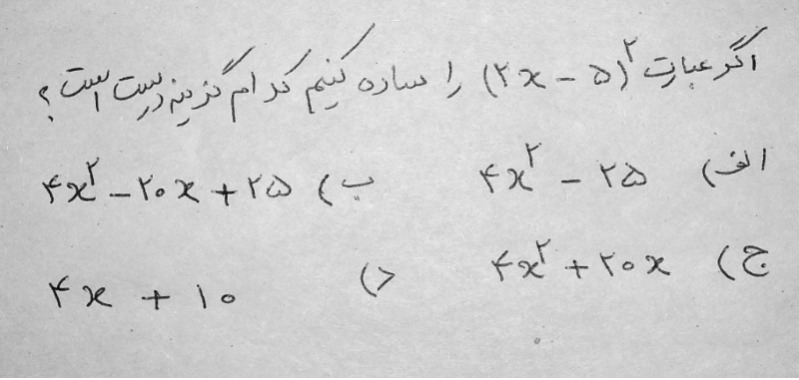 اگر عبارت (۲x - ۵)^۲ را ساده کنیم کدام گزینه درست است؟
الف) ۴x^۲ - ۲۵ ب) ۴x^۲ - ۲۰x + ۲۵
ج) ۴x^۲ + ۲۰x د) ۴x + ۱۰